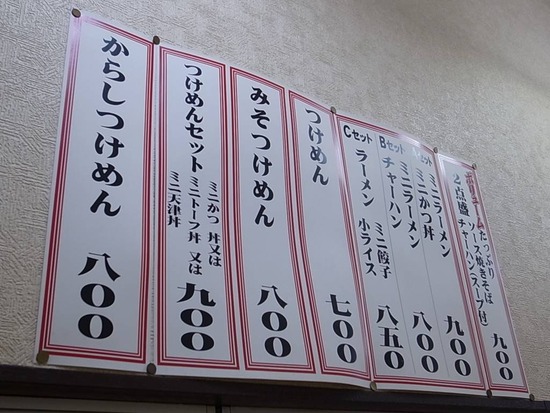 ボリュームたっぷり
2点盛 ソース焼きそば
チャーハン(スープ付)
九〇〇
Aセット ミニラーメン
ミニかつ丼
九〇〇
Bセット ミニラーメン
チャーハン
八〇〇
Cセット ラーメン ミニ餃子
小ライス
八五〇
つけめん 七〇〇
みそつけめん 八〇〇
つけめんセット ミニかつ丼又は
ミニトーフ丼 又は
ミニ天津丼
九〇〇
からしつけめん 八〇〇